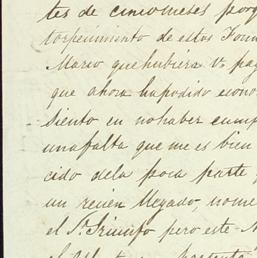 tes de cinco meses porq
torpecimiento de estos Fon
Marco que hubiera V. pag
que ahora ha podido econo
siento en no haber cump
una falta que me es bien
cido de la poca parte
un recien llegado, no me
el Sr. Triunfo pero este